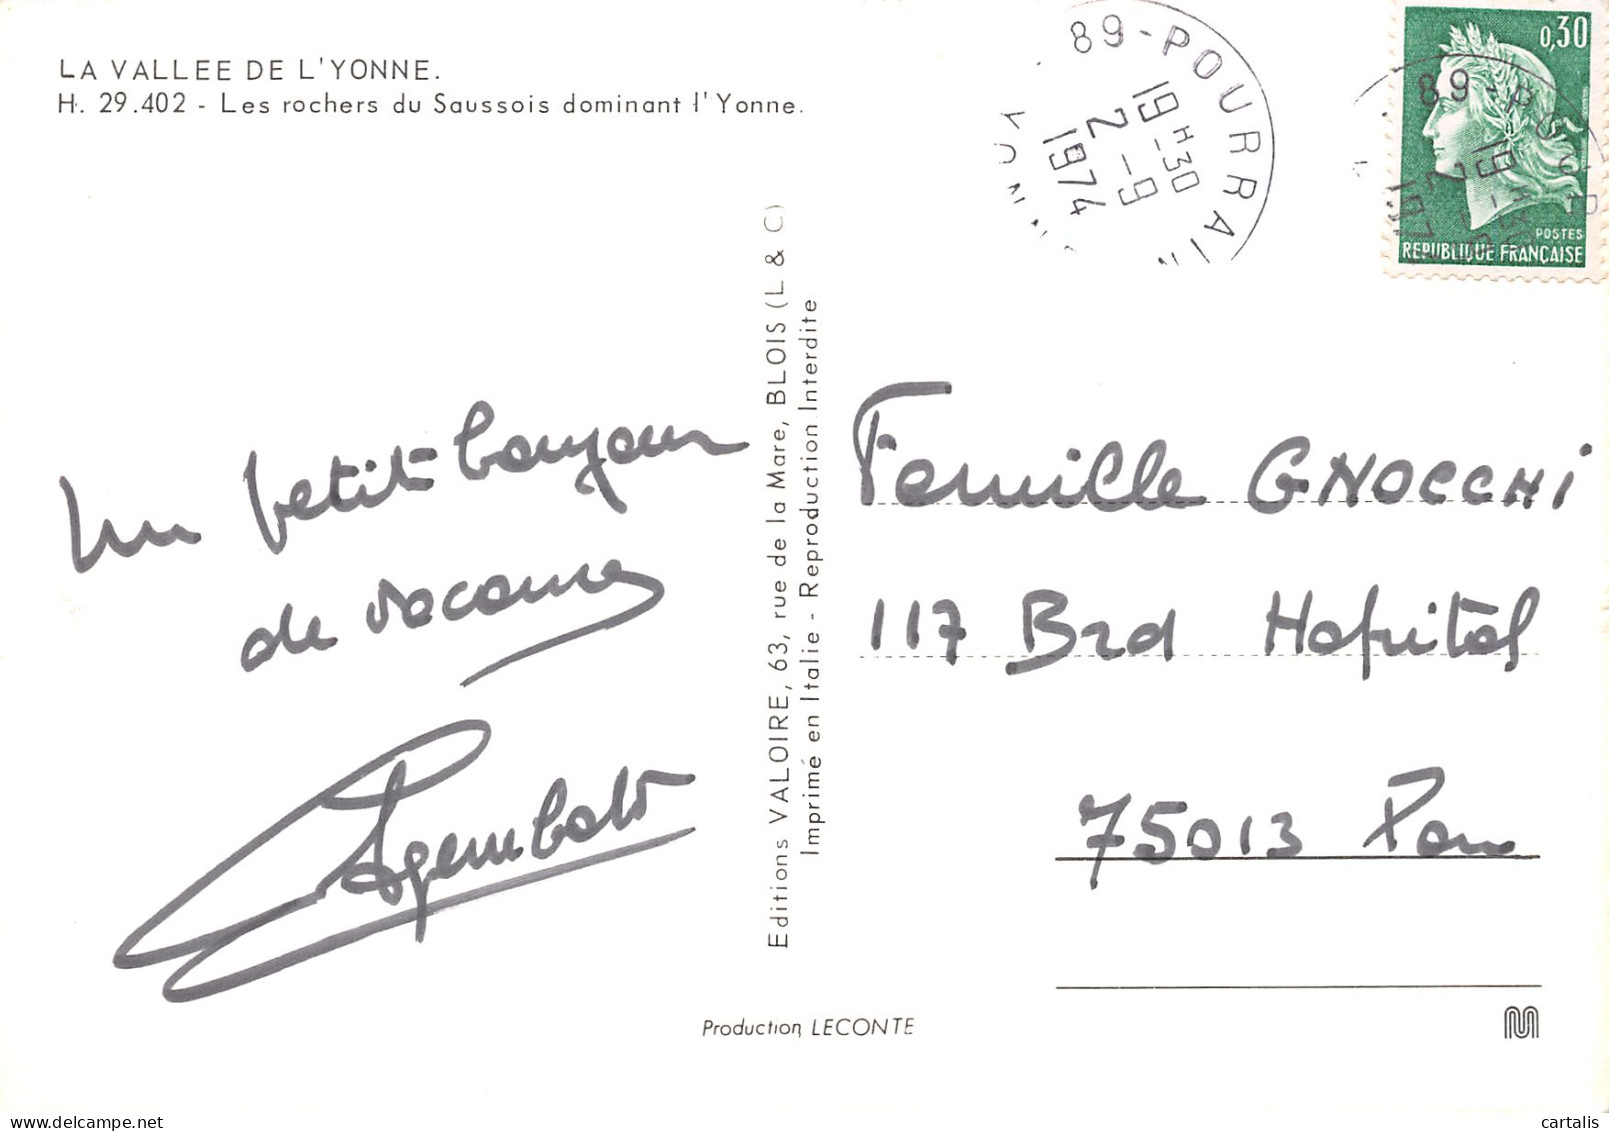 LA VALLEE DE L'YONNE.
H. 29.402 - Les rochers du Saussois dominant l'Yonne.
89-POURRAIN
19H30
2-9
1974
YONNE
0,30
POSTES
REPUBLIQUE FRANÇAISE
Un petit bonjour
de vacances
Editions VALOIRE, 63, rue de la Mare, BLOIS (L & C)
Imprimé en Italie - Reproduction Interdite
Famille GNOCCHI
117 Brd Hopital
75013 Paris
Production LECONTE
delcampe.net
cartalis